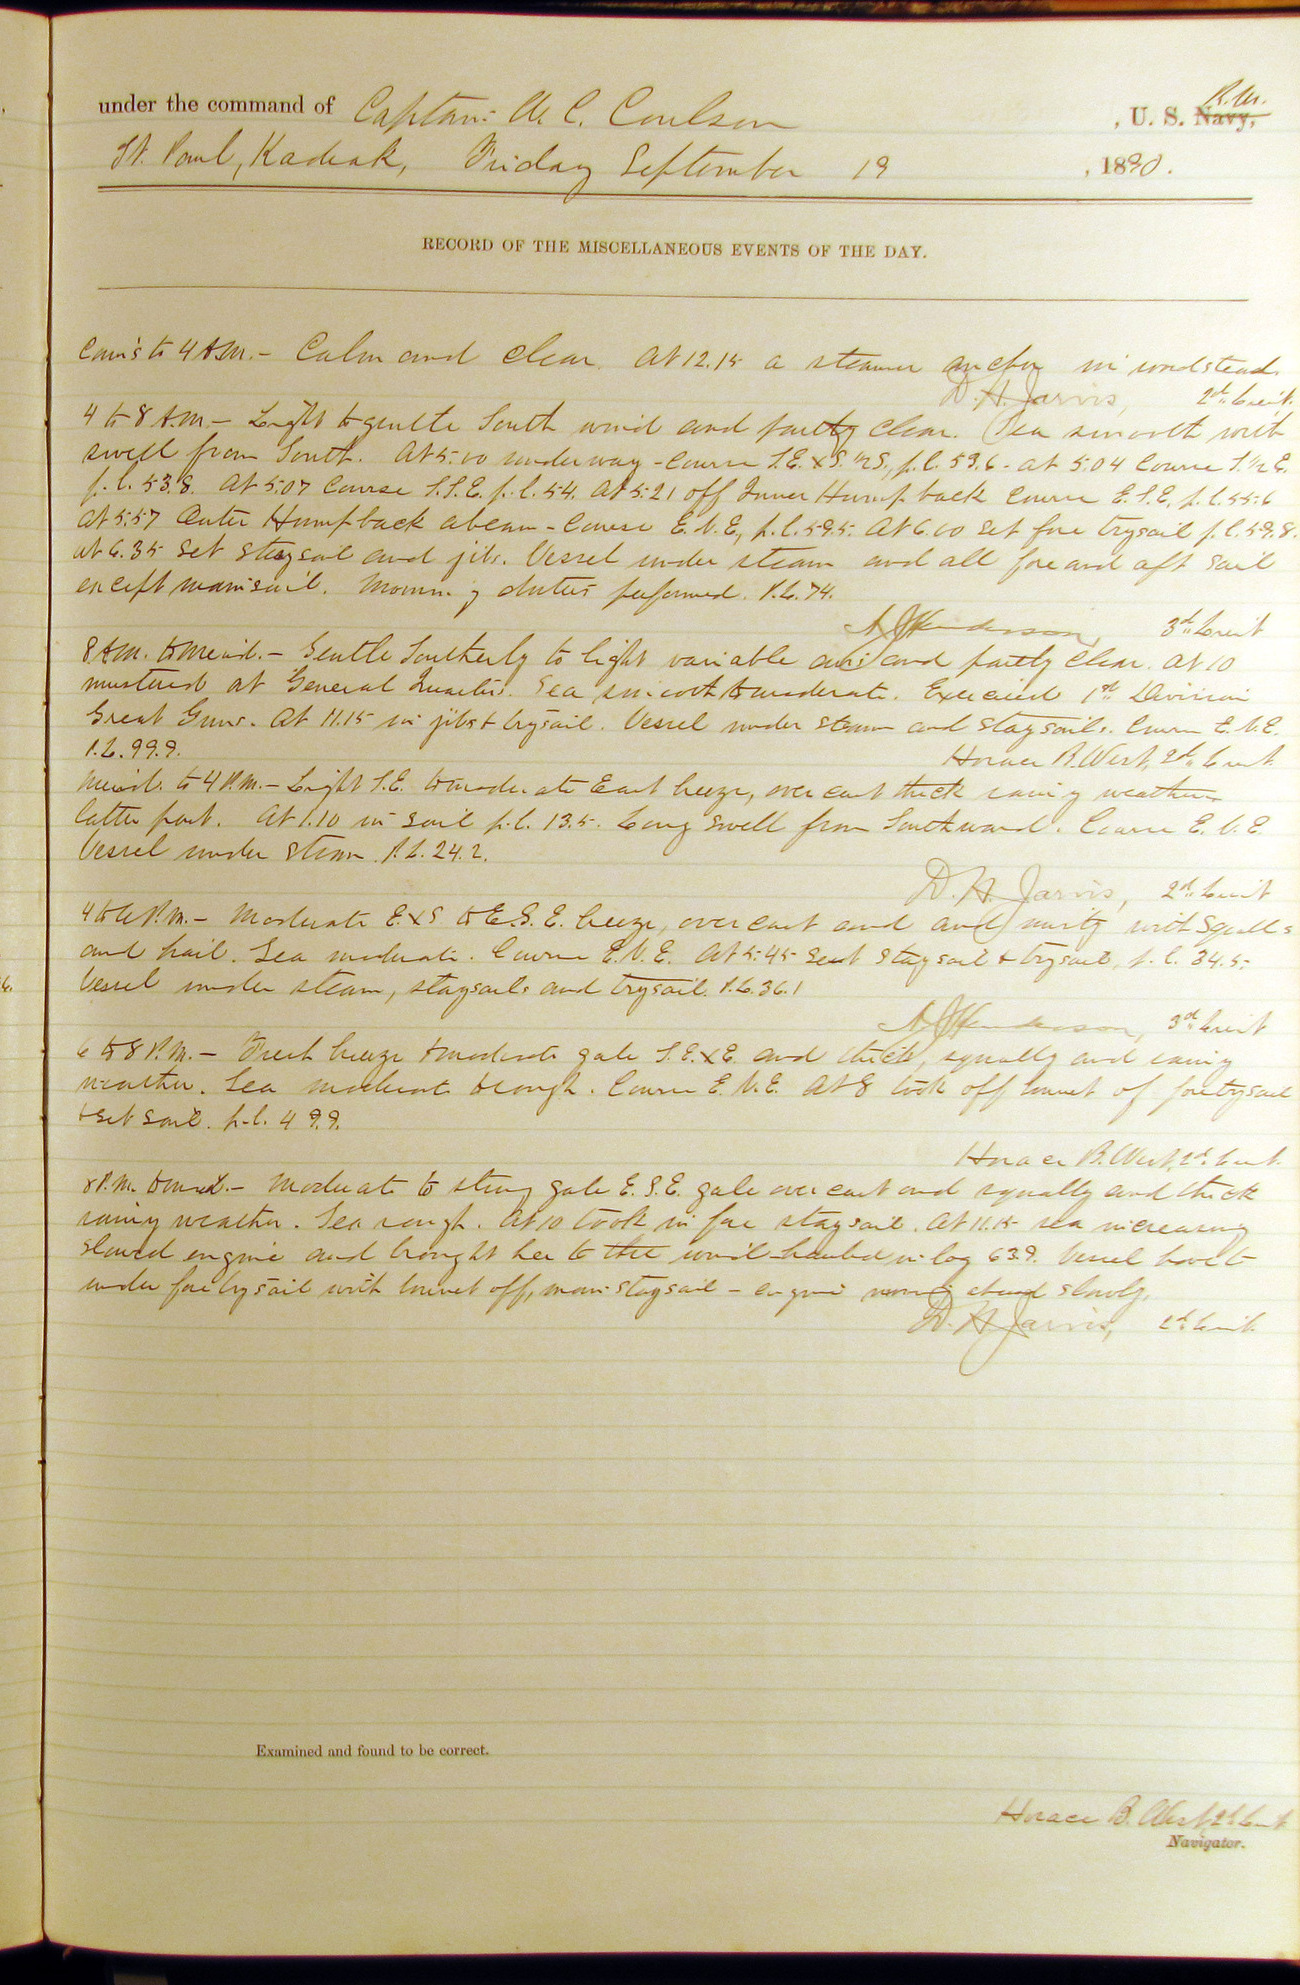 under the command of Captain W. C. Coulson, U. S. Navy, R. M.
St. Paul, Kadiak, Friday September 19, 1890.
RECORD OF THE MISCELLANEOUS EVENTS OF THE DAY.
Com's to 4 A.M. – Calm and clear. At 12.15 a steamer anchor in roadstead.
D. H. Jarvis, 2d Lieut.
4 to 8 A.M. – Light to gentle South wind and partly clear. Sea smooth with
swell from South. At 5.00 underway – Course S.E. x S. 1/2 S., p.l. 53.6 – at 5.04 Course S. 1/2 E.
p.l. 53.8. At 5:07 Course S.S.E. p.l. 54. At 5:21 off Inner Humpback Course E.S.E, p.l. 55.6
at 5:57 Outer Humpback abeam – Course E.N.E, p.l. 59.5. At 6.00 set fore trysail p.l. 59.8.
at 6.35 set staysail and jibs. Vessel under steam and all fore and aft sail
except mainsail. Morning duties performed. P.L. 74.
3d Lieut
8 A.M. to Merid. – Gentle Southerly to light variable airs and partly clear. At 10
mustered at General Quarters. Sea smooth to moderate. Exercised 1st Division
Great Guns. At 11.15 in jibs & trysail. Vessel under steam and staysails. Course E.N.E.
P.L. 99.9.
Horace B. West, 2d Lieut.
Merid. to 4 P.M. – Light S.E. to moderate East breeze, overcast thick rainy weather
latter part. At 1.10 in sail p.l. 13.5. Long swell from Southward. Course E.N.E.
Vessel under steam. P.L. 24.2.
D. H. Jarvis, 2d Lieut
4 to 6 P.M. – Moderate E. x S to E.S.E. breeze, overcast and and misty with squalls
and hail. Sea moderate. Course E.N.E. At 5:45 set staysail & trysail, p.l. 34.5.
Vessel under steam, staysails and trysail. P.L. 36.1
3d Lieut
6 to 8 P.M. – Fresh breeze to moderate gale S.E. x E. and thick, squally and rainy
weather. Sea moderate to rough. Course E.N.E. At 8 took off bonnet of fore trysail
& set sail. p.l. 49.9.
Horace B. West, 2d Lieut.
8 P.M. to mid. – Moderate to strong gale E.S.E. gale overcast and squally and thick
rainy weather. Sea rough. At 10 took in fore staysail. At 11.15 sea increasing
slowed engine and brought her to the wind hauled in log 63.9. Vessel hove to
under fore trysail with bonnet off, main staysail – engine moving ahead slowly.
D. H. Jarvis, 2d Lieut.
Examined and found to be correct.
Horace B. West, 2d Lieut
Navigator.